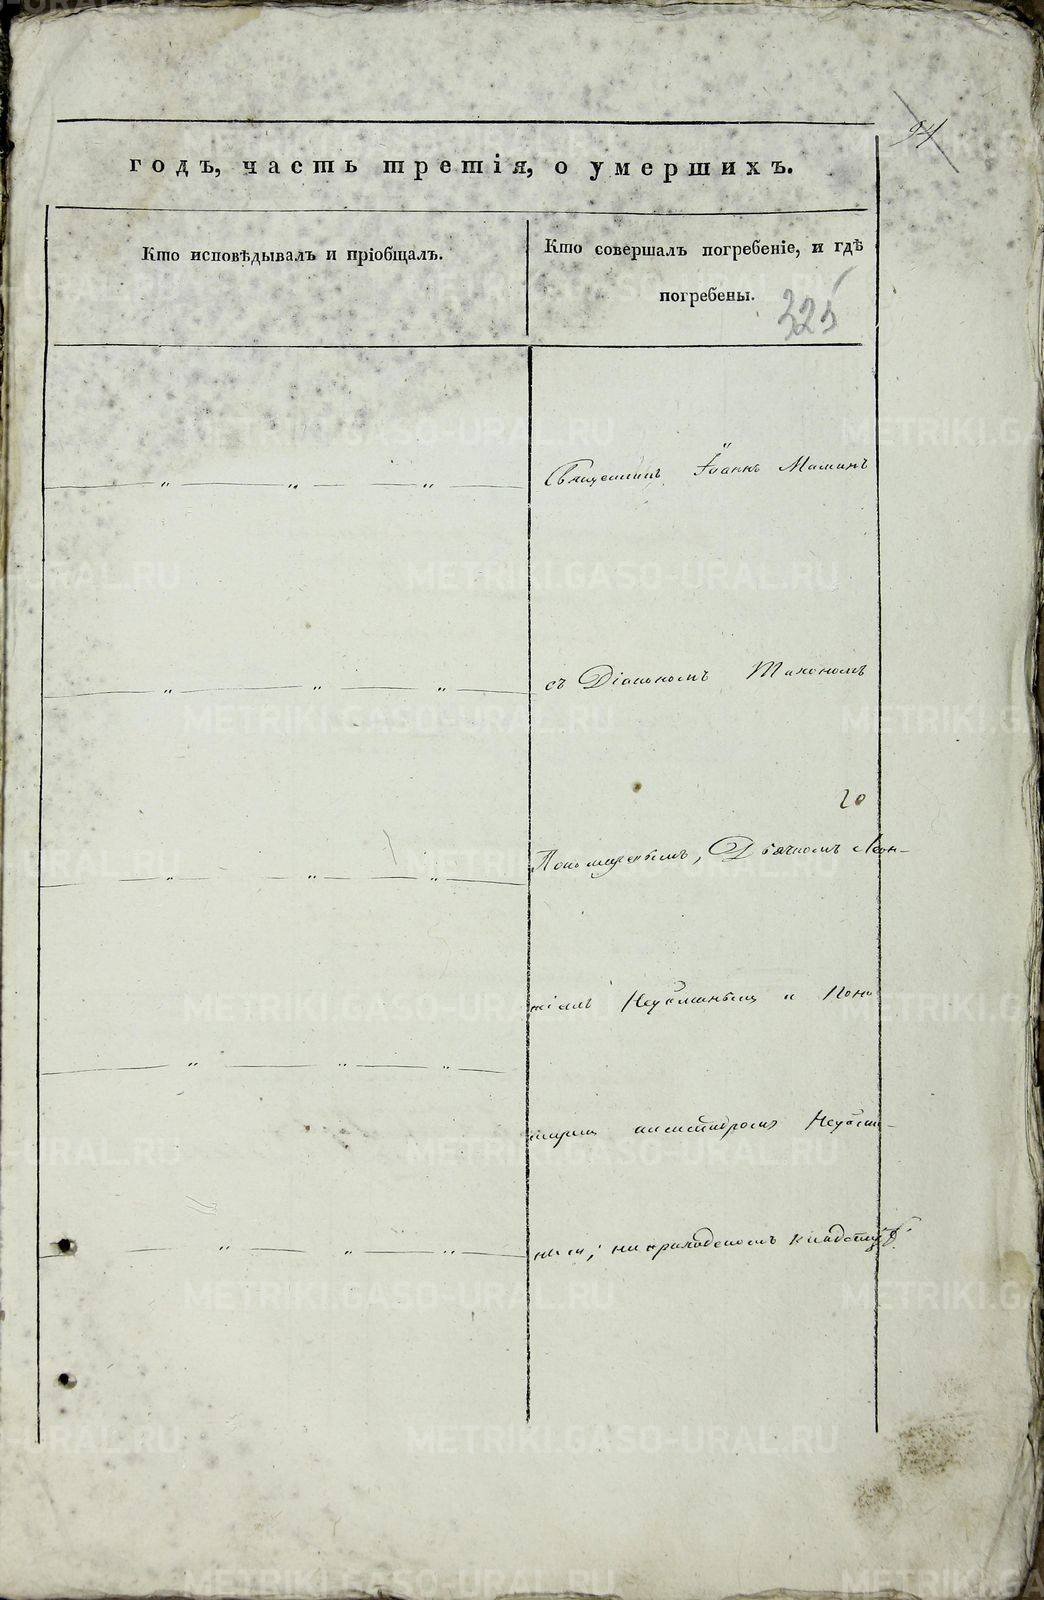 94
годъ, часть третія, о умершихъ.
Кто исповѣдывалъ и пріобщалъ.
Кто совершалъ погребеніе, и гдѣ
погребены.
325
Священникъ Іоаннъ Маминъ
съ Діакономъ Тихономъ
20
Пономаревымъ, Дьячкомъ Леон-
тіемъ и Поно
марем Александромъ
ными; на приходскомъ кладбищѣ.